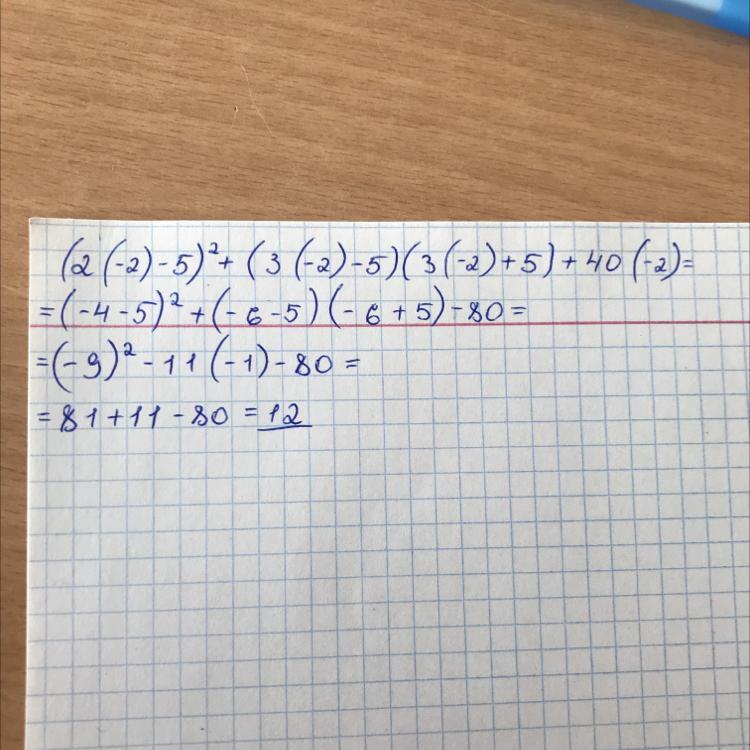 (2(-2)-5)²+(3(-2)-5)(3(-2)+5)+40(-2)=
=(-4-5)²+(-6-5)(-6+5)-80=
=(-9)²-11(-1)-80=
=81+11-80=12